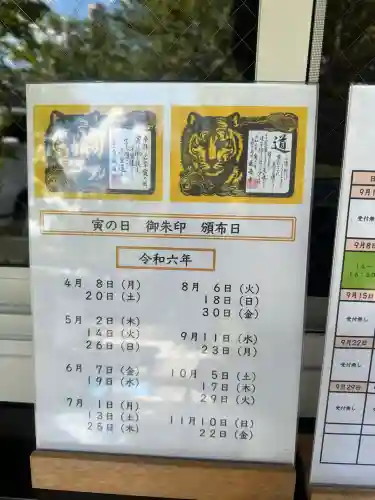 道
寅の日 御朱印 頒布日
令和六年
4月 8日(月)
20日(土)
5月 2日(木)
14日(火)
26日(日)
6月 7日(金)
19日(水)
7月 1日(月)
13日(土)
25日(木)
8月 6日(火)
18日(日)
30日(金)
9月11日(水)
23日(月)
10月 5日(土)
17日(木)
29日(火)
11月10日(日)
22日(金)
9月1日
受付無し
9月8日
9月15日
受付無し
9月22日
受付無し
9月29日
受付無し